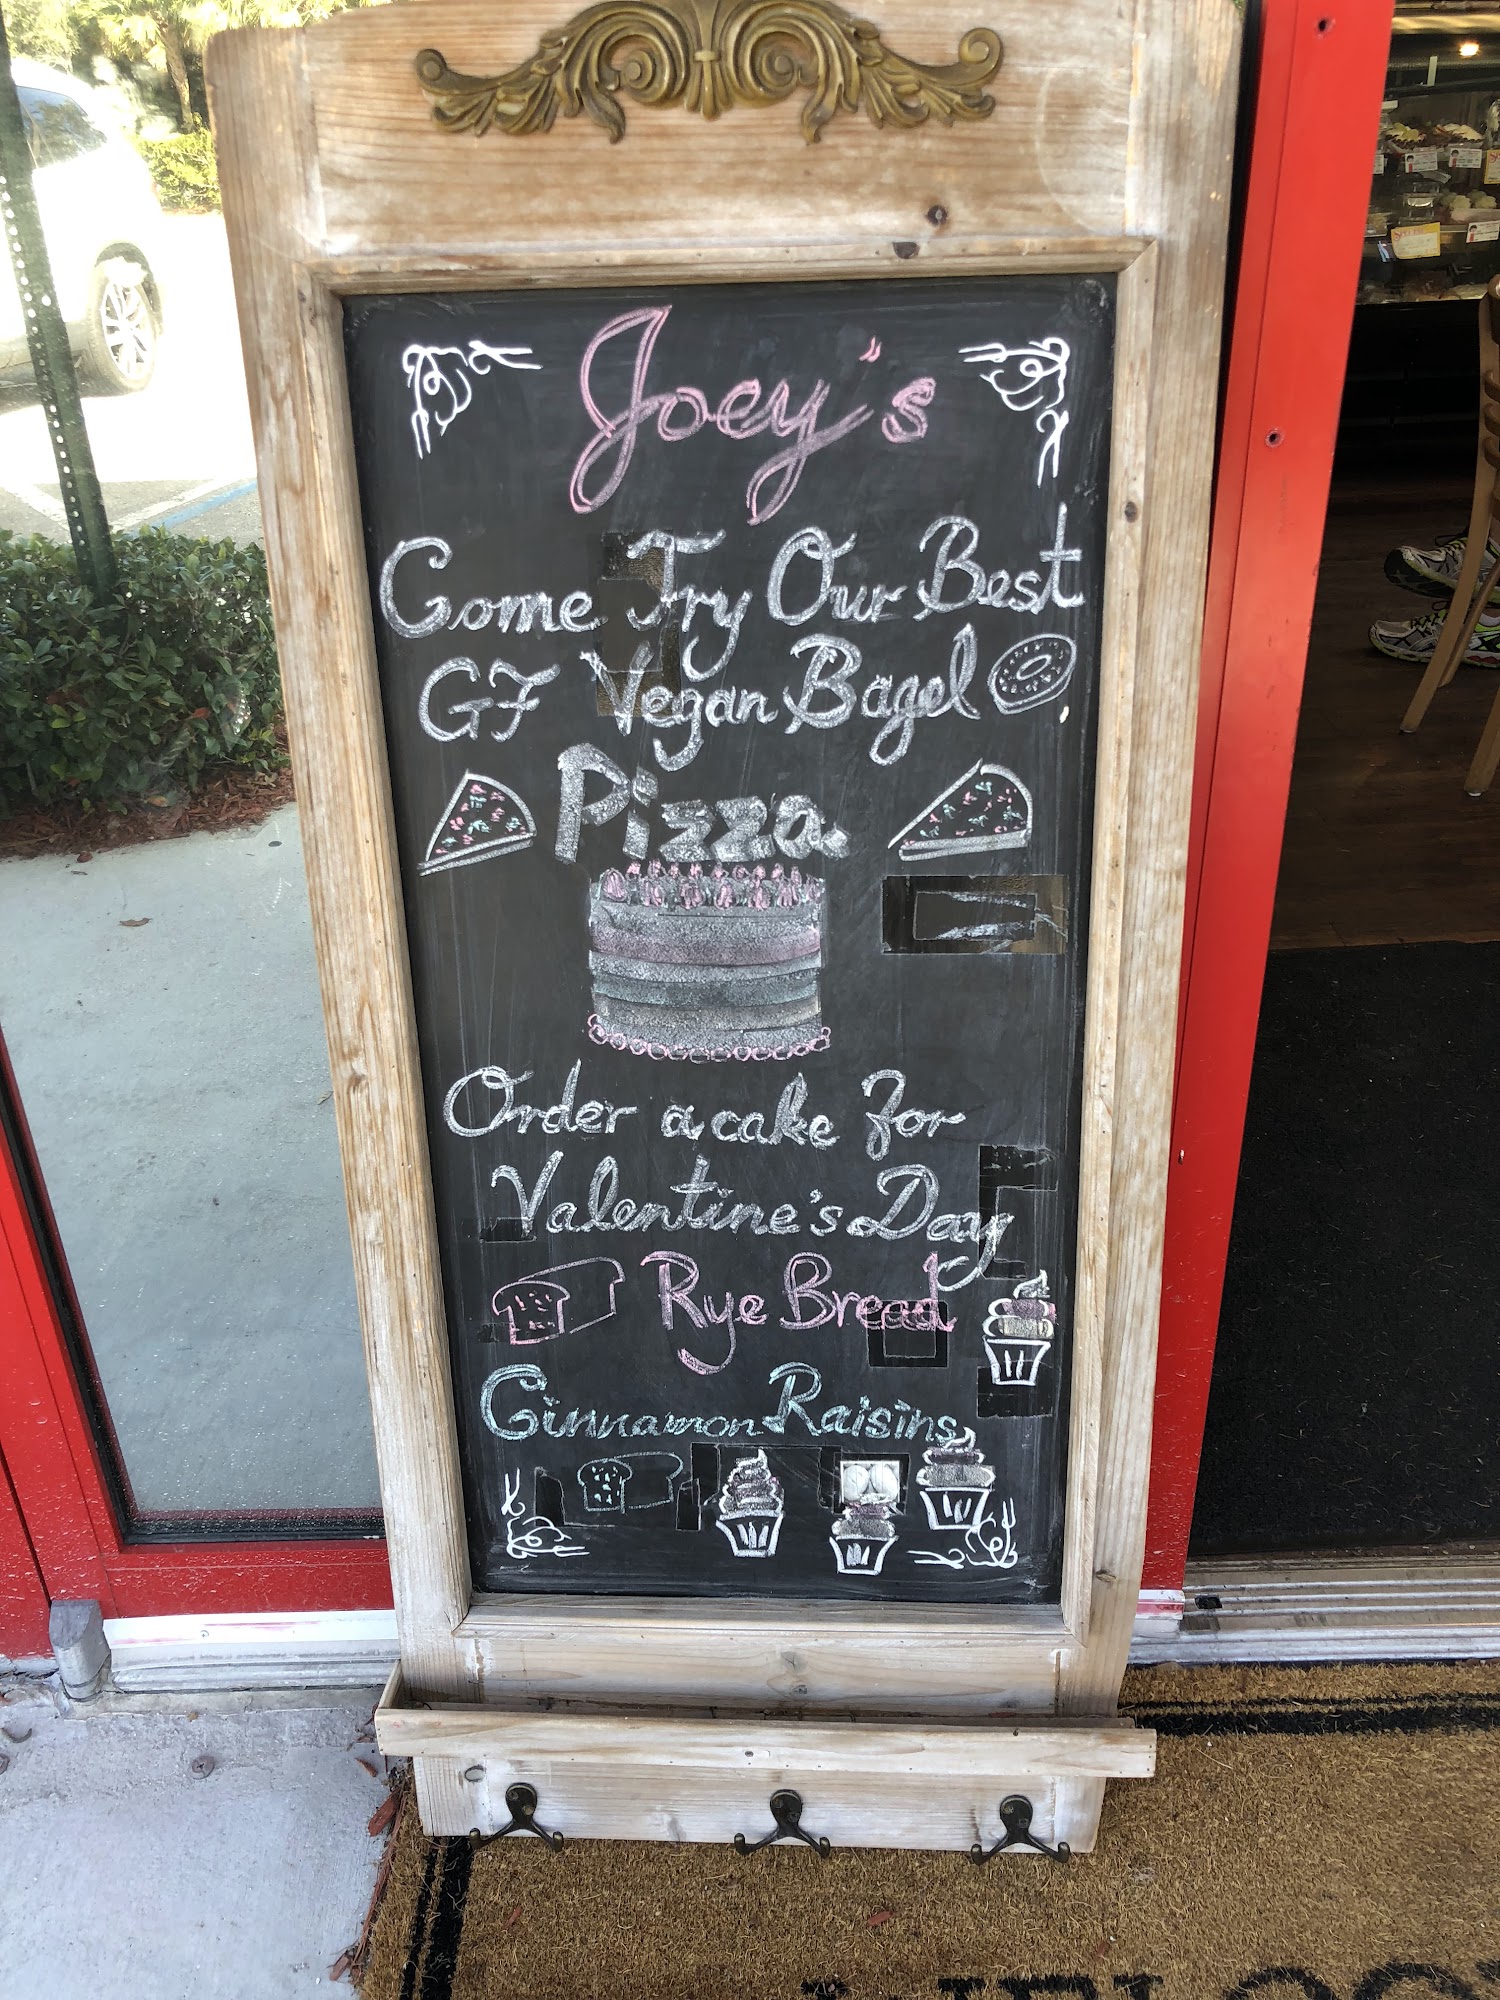 Joey's
Come Try Our Best
GF Vegan Bagel
Pizza
Order a cake for
Valentine's Day
Rye Bread
Cinnamon Raisins